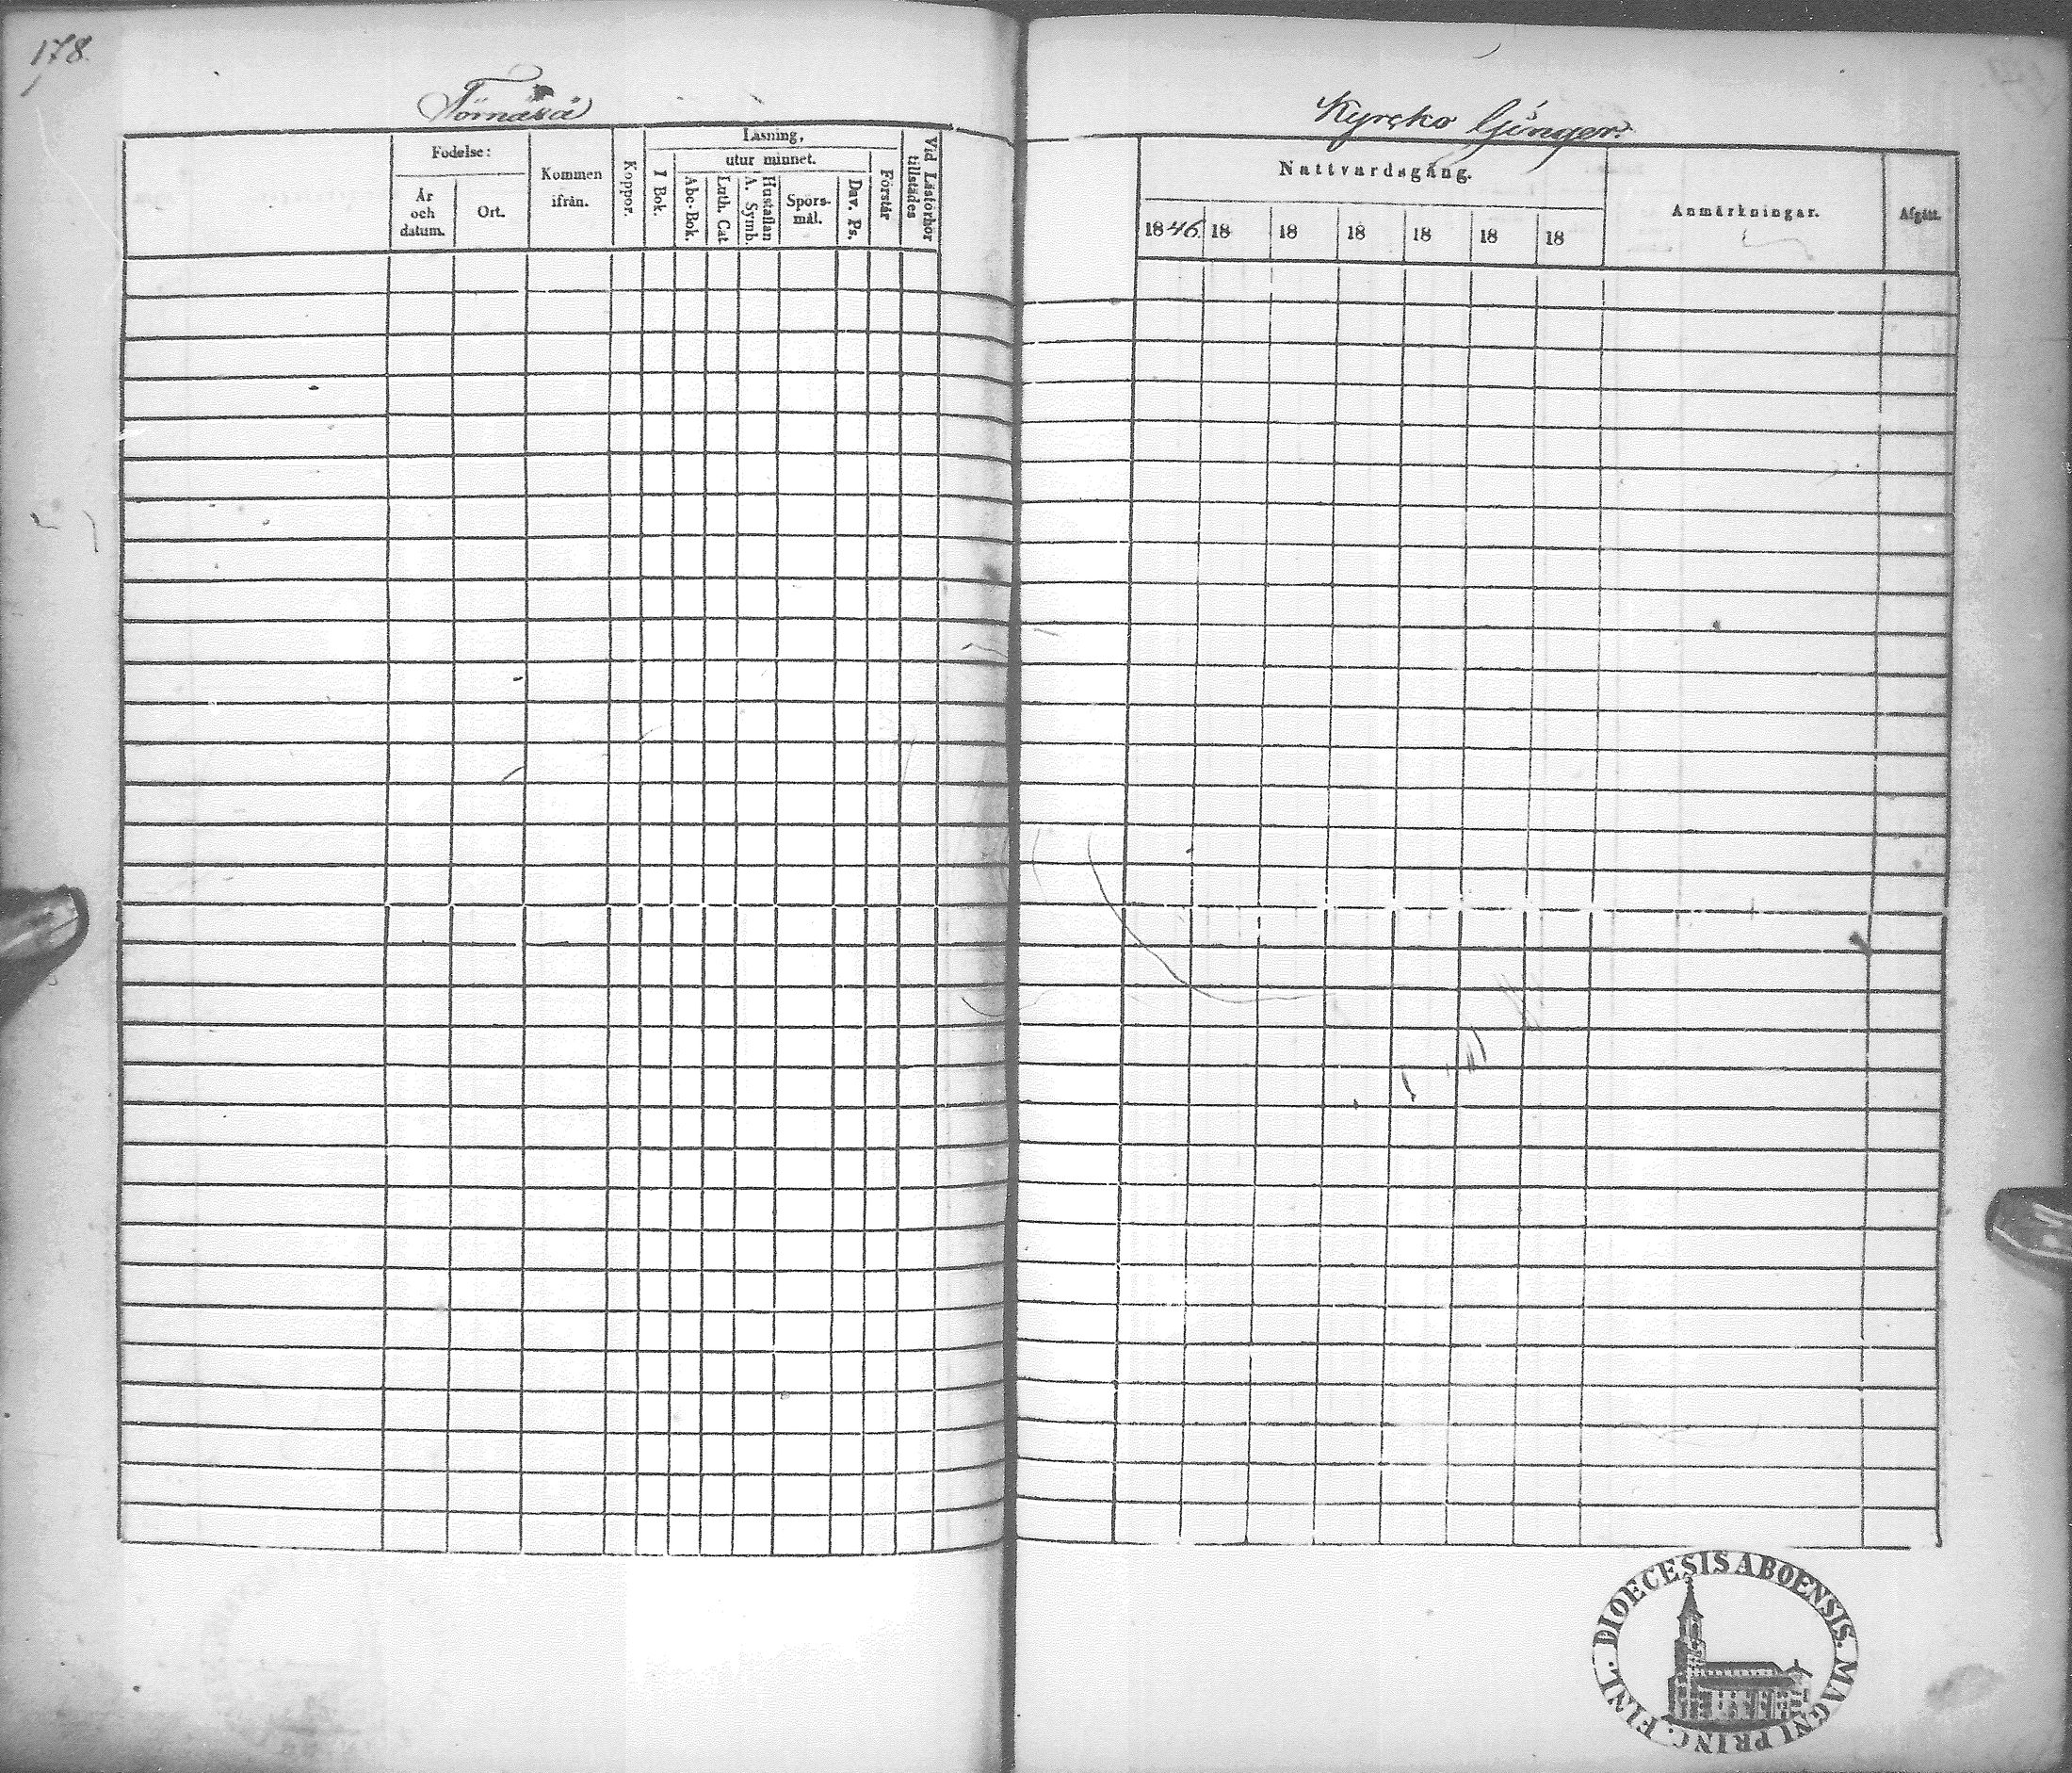 178.
Törnäsä
Födelse:
År
och
datum.
Ort.
Kommen
ifrån.
Koppor.
Läsning,
I Bok.
utur minnet.
Abc-Bok.
Luth. Cat.
Hustaflan
A. Symb.
Spörs-
mål.
Dav. Ps.
Förstår
Vid Läsförhör
tillstädes
Kyrcko
Nattvardsgång.
1846. 18 18 18 18 18 18
Anmärkningar.
Afgått.
DIOECESIS ABOENSIS. MAGNI PRINC. FINL.